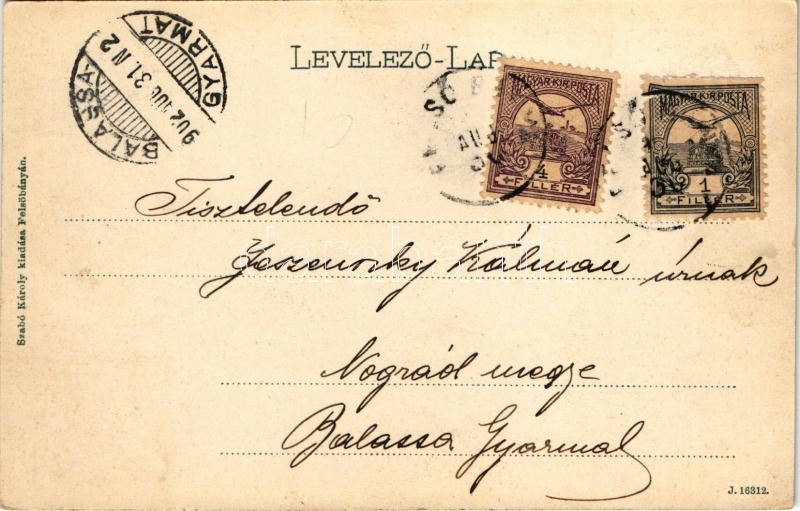 LEVELEZŐ-LAP
BALASSA-
GYARMAT
902 AUG 31 N2
MAGYAR·KIR·POSTA
4
FILLÉR
MAGYAR·KIR·POSTA
1
FILLÉR
Tisztelendő
Kálmán úrnak
Nográd megye
Balassa Gyarmat
Szabó Károly kiadása Felsőbányán.
J. 16312.